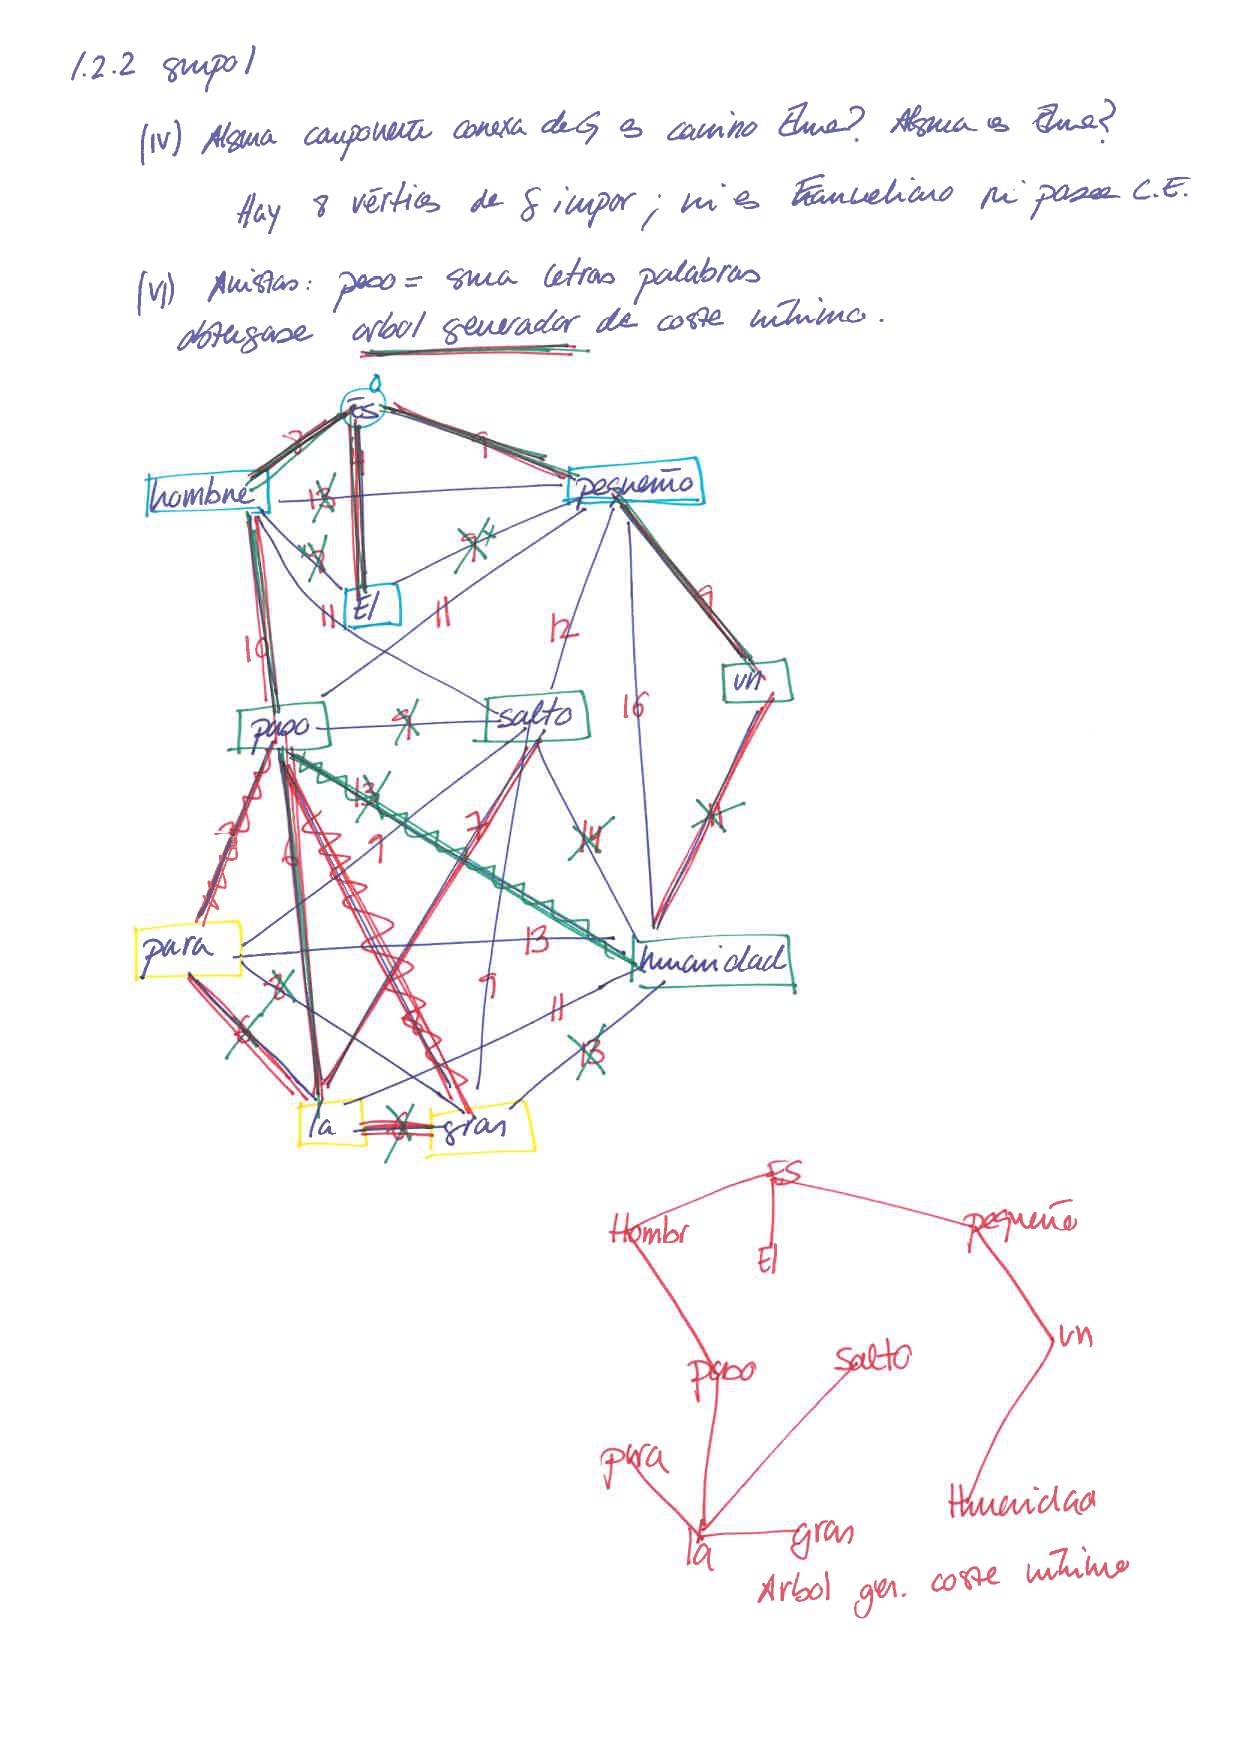 1.2.2 grupo 1
(iv) Alguna componente conexa de G es camino Euler? Alguna es Euler?
Hay 8 vértices de g impar; ni es Euleriano ni posee C.E.
(vi) Aristas: peso = suma letras palabras
obtengase arbol generador de coste mínimo.
0
ES
8
9
hombre
13
pequeño
9
9
El
11
11
12
10
9
16
un
paso
9
salto
13
11
8
6
9
7
14
para
13
humanidad
8
9
6
11
13
la
6
gran
ES
Hombr
pequeño
El
un
paso
salto
para
Humanidad
la
gran
Arbol gen. coste mínimo